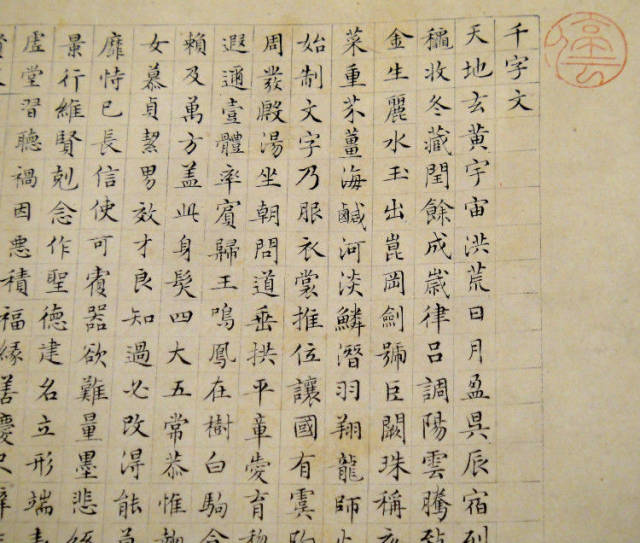 千字文
天地玄黄宇宙洪荒日月盈昃辰宿列
穐收冬藏閏餘成歲律呂調陽雲騰致
金生麗水玉出崑岡劍號巨闕珠稱夜
菜重芥薑海鹹河淡鱗潛羽翔龍師火
始制文字乃服衣裳推位讓國有虞陶
周發殷湯坐朝問道垂拱平章愛育
遐邇壹體率賓歸王鳴鳳在樹白駒食
賴及萬方盖此身髮四大五常恭惟鞠
女慕貞絜男效才良知過必改得能莫
靡恃己長信使可覆器欲難量墨悲絲
景行維賢剋念作聖德建名立形端表
虛堂習聽禍因惡積福緣善慶尺璧